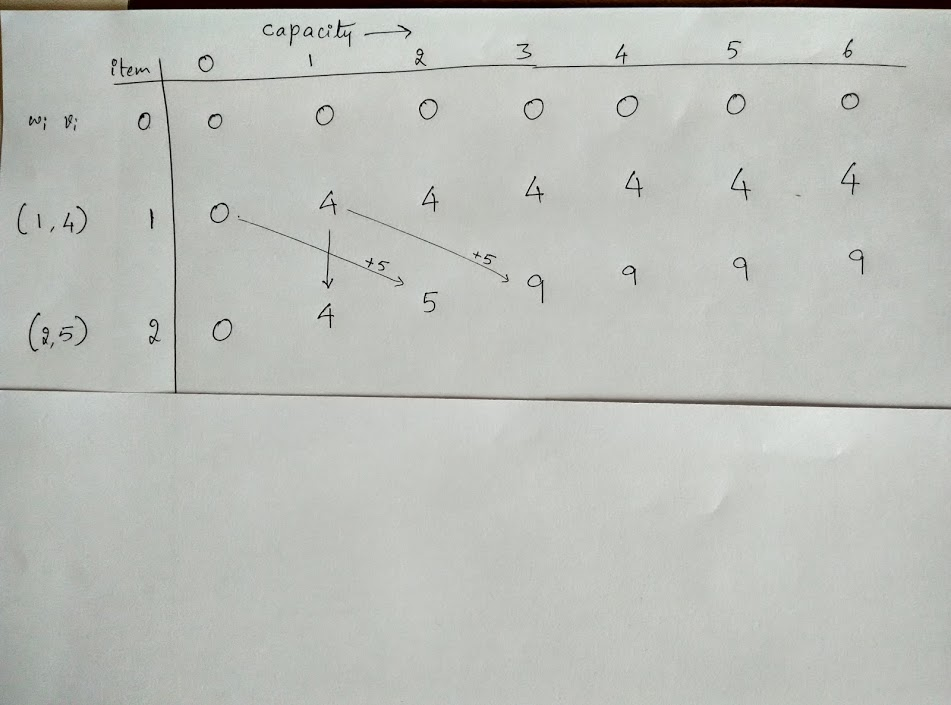 capacity →
item 0 1 2 3 4 5 6
wi vi 0 0 0 0 0 0 0 0
(1,4) 1 0 4 4 4 4 4 4
+5 +5
(2,5) 2 0 4 5 9 9 9 9